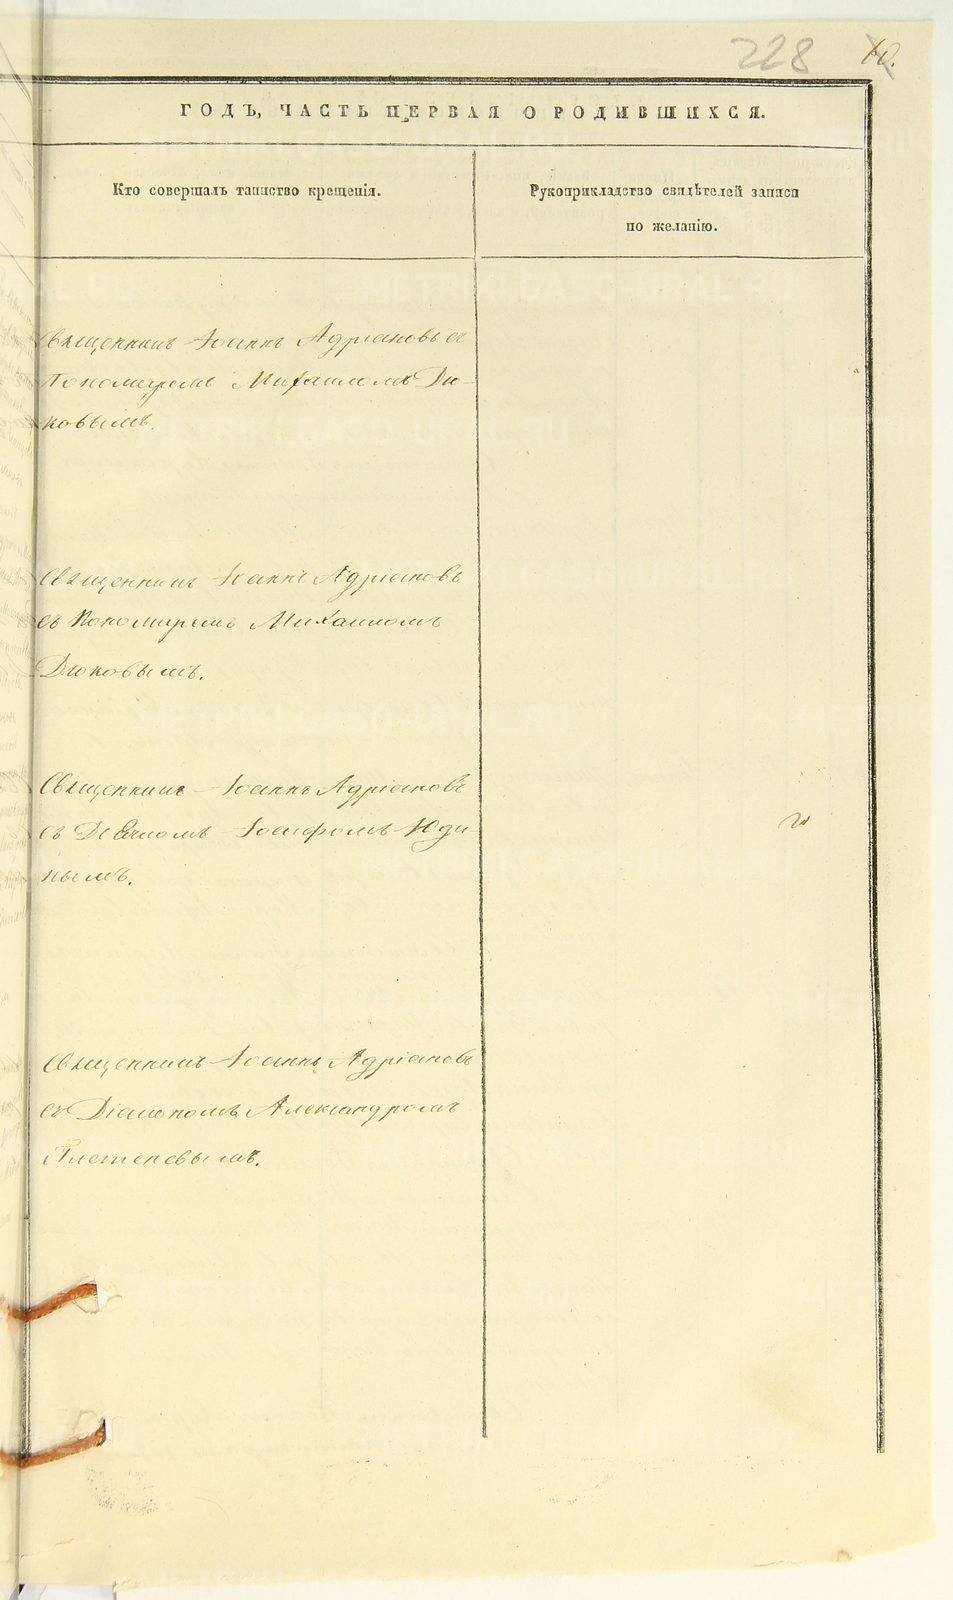 228 10.
ГОДЪ, ЧАСТЬ ПЕРВАЯ О РОДИВШИХСЯ.
Кто совершалъ таинство крещенія.
Рукоприкладство свидѣтелей записи
по желанію.
Священникъ Іоаннъ Адріановъ съ
Пономаремъ Михаиломъ Дю-
ковымъ.
Священникъ Іоаннъ Адріановъ
съ Пономаремъ Михаиломъ
Дюковымъ.
Священникъ Іоаннъ Адріановъ
съ Дьячкомъ Іосифомъ Юди-
нымъ.
Священникъ Іоаннъ Адріановъ
съ Діакономъ Александромъ
Плетеневымъ.
METRIKI.GASO-URAL.RU